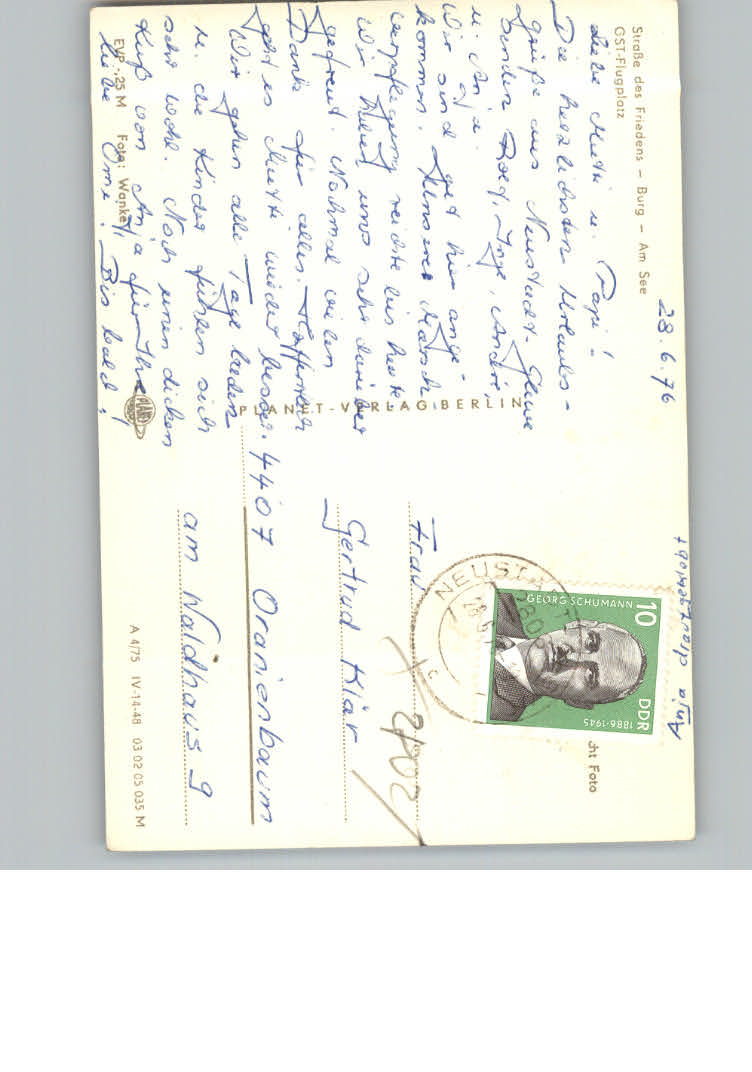 Straße des Friedens – Burg – Am See
GST-Flugplatz
28.6.76
Liebe Mutti u. Papi!
Die herzlichsten Urlaubs-
grüße aus Neustadt.
senden Inge, André,
u. Anja.
Wir sind gut hier ange-
kommen. Unsere Marsch
verpflegung reichte bis heute
Wir haben uns sehr darüber
gefreut. Nochmal vielen
Dank für alles. Hoffentlich
geht es Mutti wieder besser.
Wir gehen alle Tage baden
u. die Kinder fühlen sich
sehr wohl. Noch einen dicken
Kuß von Anja für Ihre
liebe Omi. Bis bald!
EVP -,25 M Foto: Wanke
PLANET-VERLAG BERLIN
PLANET
Anja
cht Foto
10
DDR
GEORG SCHUMANN
1886-1945
NEUST
Frau
Gertrud Klär
4407 Oranienbaum
am Waldhaus 9
A 4/75 IV-14-48 03 02 05 035 M